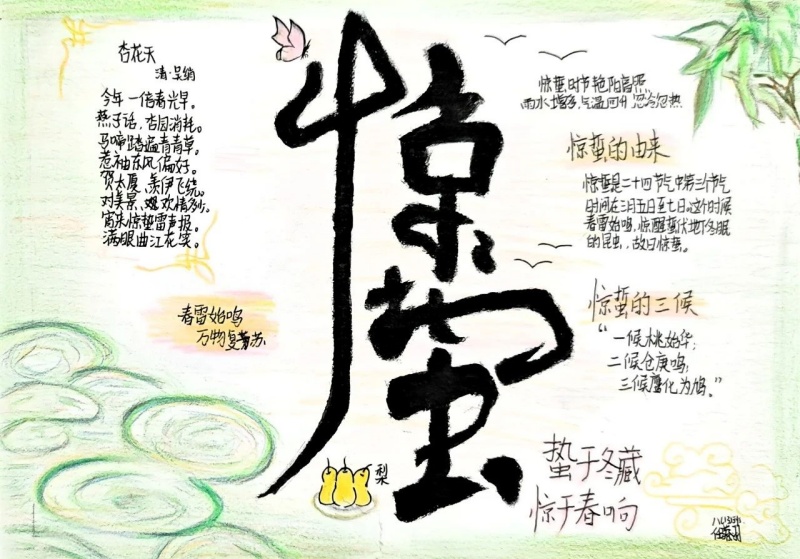 杏花天
清·吴绡
今年一倍春光早。
燕子话、杏园消耗。
马啼踏遍青青草。
惹袖东风偏好。
贺太厦、羡伊飞绕。
对美景、难欢情多。
宵来惊蛰雷声报。
满眼曲江花笑。
春雷始鸣
万物复苏
惊蛰
梨
惊蛰时节艳阳高照,
雨水增多,气温回升 忽冷忽热
惊蛰的由来
惊蛰是二十四节气中第三个节气
时间在三月五日至七日。这个时候
春雷始鸣,惊醒蛰伏地下冬眠
的昆虫,故曰惊蛰。
惊蛰的三候
“一候桃始华;
二候仓庚鸣;
三候鹰化为鸠。”
蛰于冬藏
惊于春响